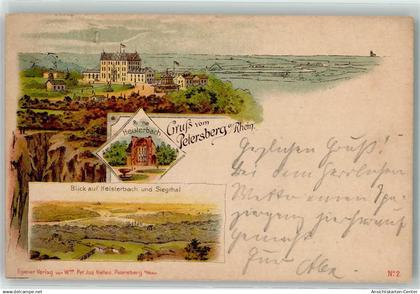 Ruine
Heisterbach
Gruß vom
Petersberg a/Rhein.
Blick auf Heisterbach und Siegthal
Herzlichen Gruß!
Bei dem herrlichen
Wetter einen Spa-
ziergang hierherauf
gemacht.
Eigener Verlag von Wwe Pet. Jos. Nelles, Petersberg a/Rhein.
No 2.
www.ansichtskarten-center.de
Ansichtskarten-Center